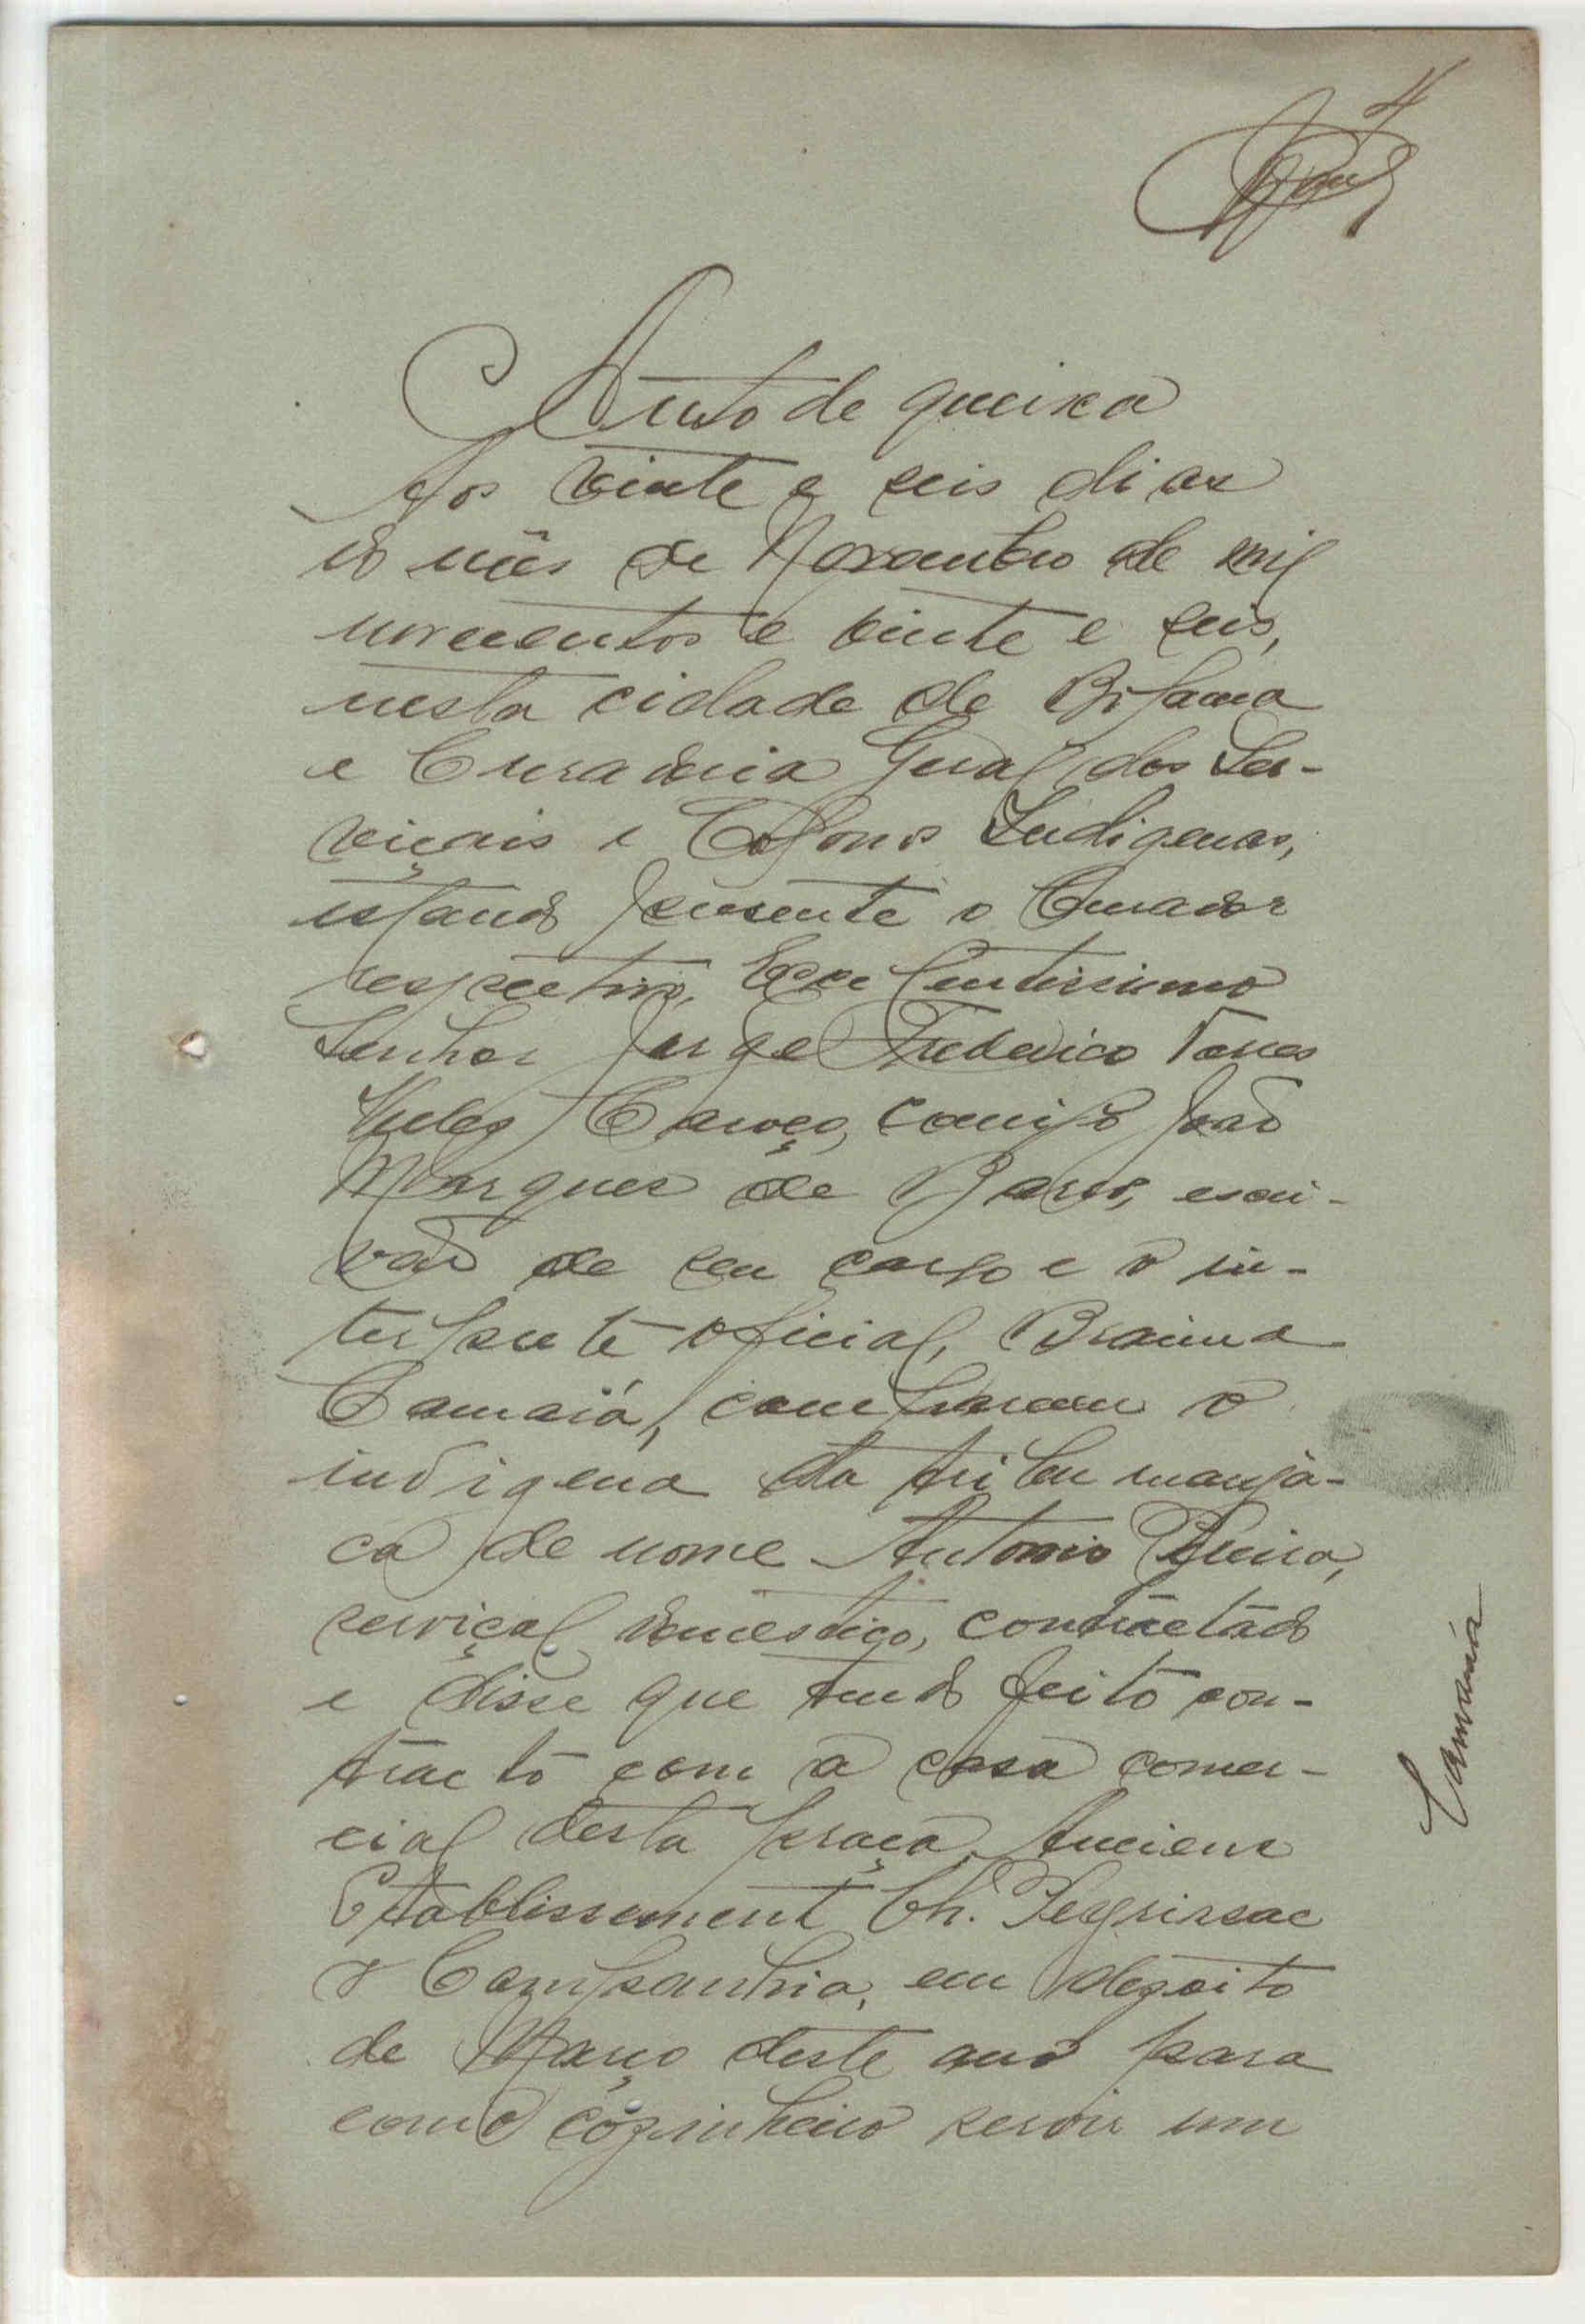 4
Auto de queixa
Aos vinte e seis dias
do mês de Novembro de mil
novecentos e vinte e seis,
nesta cidade de Bolama
e Curadoria Geral dos Ser-
viçais e Colonos Indigenas,
estando presente o Curador
respectivo, Excelentissimo
Senhor Jorge Frederico Torres
Velez Caroço, comigo João
Marques de Barros, escri-
vão de seu cargo e o in-
terprete oficial, Braima
Camará, compareceu o
indigena da tribu manja-
ca de nome Antonio
serviçal domestico, contractado
e disse que tendo feito con-
tracto com a casa comer-
cial desta praça, Anciens
Etablissement Ch. Peyrissac
& Companhia, em dezoito
de Março deste ano para
como cozinheiro servir um
Camará